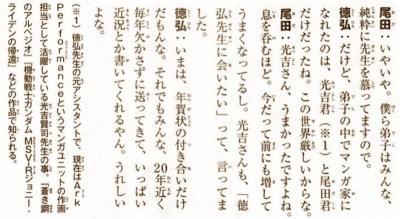 尾田：いやいや。僕ら弟子はみんな、
純粋に先生を慕ってますので。
徳弘：だけど、弟子の中でマンガ家に
なれたのは、光吉君（※1）と尾田君
だけだったね。この世界厳しいからな。
尾田　光吉さん、うまかったですよね。
息を呑むほど。今だって前にも増して
うまくなってるし。光吉さんも、「徳
弘先生に会いたい」って、言ってま
した。
徳弘：いまは、年賀状の付き合いだけ
だもんな。それでもみんな、20年近く
毎年欠かさずに送ってきて、いっぱい
近況とか書いてくれるやん。うれしい
よな。
（※1）徳弘先生の元アシスタントで、現在はArk
Performanceというマンガユニットの作画
担当として活躍している光吉賢司先生の事。『蒼き鋼
のアルペジオ』『機動戦士ガンダムMSV-Rジョニー・
ライデンの帰還』などの作品で知られる。